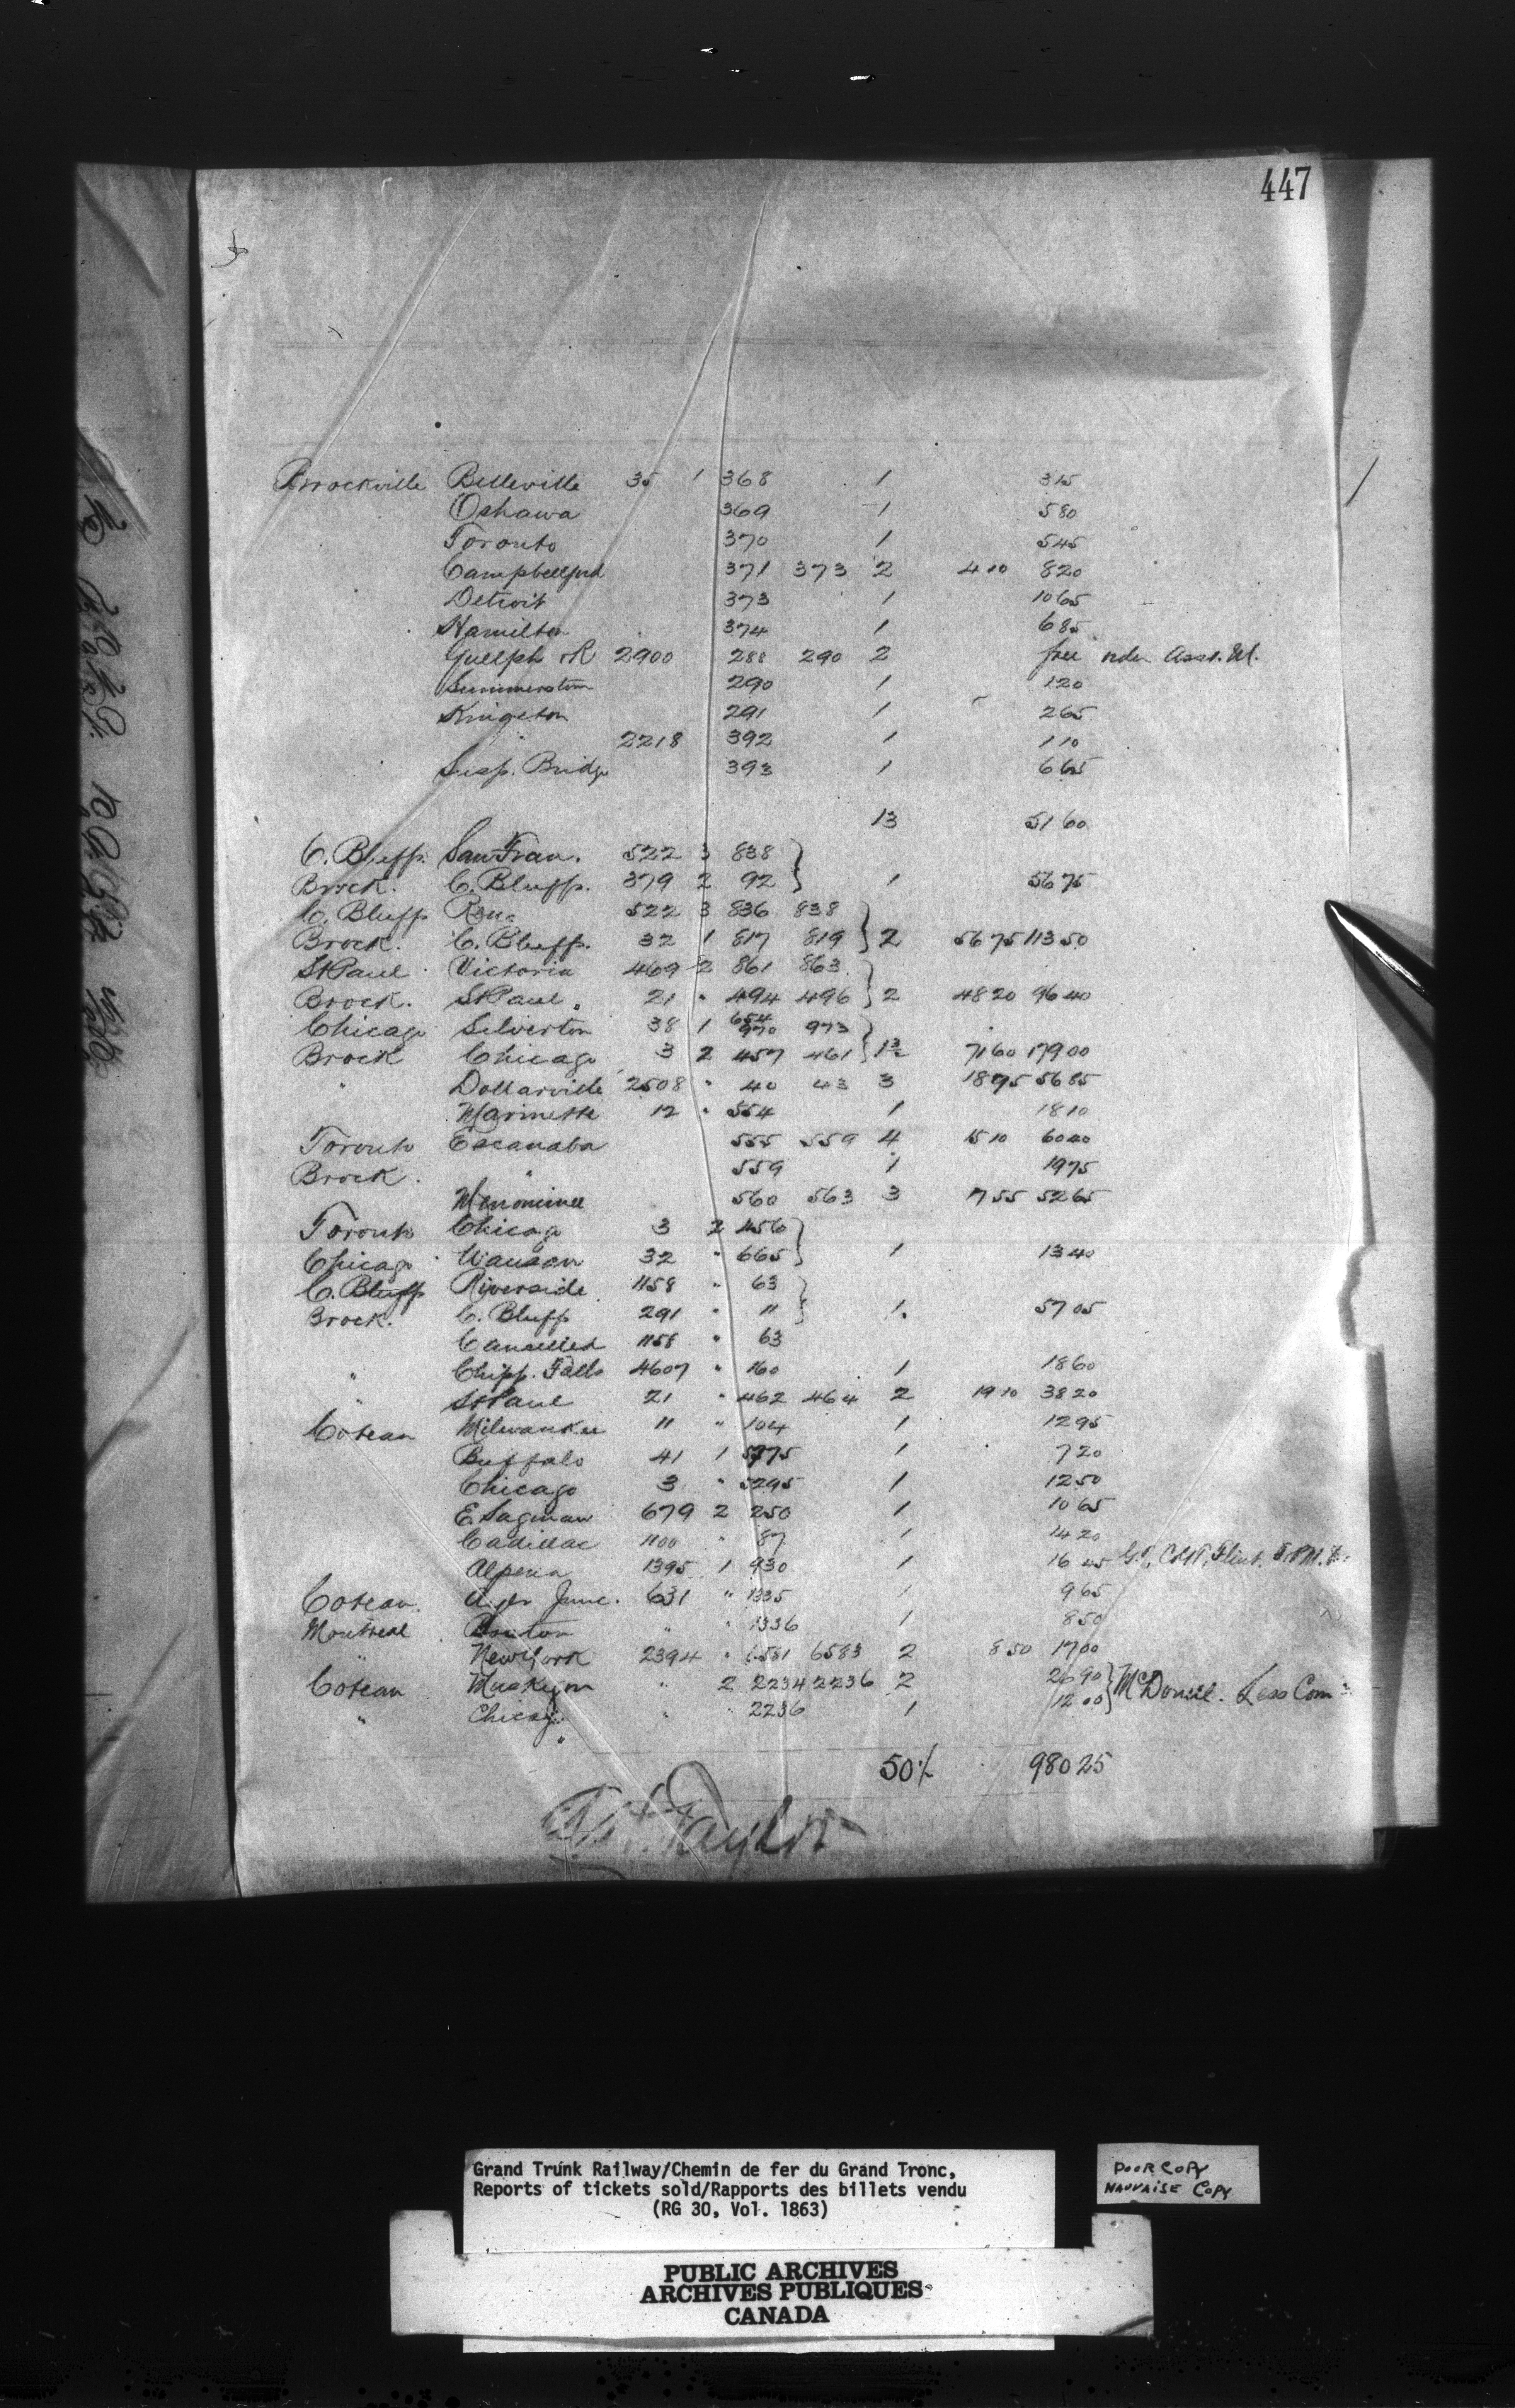 447
Brockville Belleville 35 1 368 1 315
Oshawa 369 1 580
Toronto 370 1 545
Campbellford 371 373 2 410 820
Detroit 373 1 1065
Hamilton 374 1 685
Guelph 2900 288 290 2 free
Summerstown 290 1 120
Kingston 291 1 265
2218 392 1 110
Susp. Bridge 393 1 665
13 5160
C. Bluffs San Fran. 522 3 838
Brock. C. Bluffs. 379 2 92 1 5675
C. Bluffs 522 3 836 838
Brock. C. Bluffs. 32 1 817 819 2 5675 11350
St Paul Victoria 469 2 861 863
Brock. St Paul " 21 " 494 496 2 4820 9640
Chicago Silverton 38 1 970 973
Brock Chicago 3 2 457 461 7160 17900
" Dollarville 2508 " 40 43 3 1895 5685
Marinette 12 " 554 1 1810
Toronto Escanaba 555 559 4 1510 6040
Brock. " 559 1 1975
Menominee 560 563 3 1755 5265
Toronto Chicago 3 2 456
Chicago Wausau 32 " 665 1 1340
C. Bluffs Riverside 1158 " 63
Brock. C. Bluffs 291 " 11 1 5705
Cancelled 1158 " 63
" Chipp. Falls 4607 " 160 1 1860
" St Paul 21 " 462 464 2 1910 3820
Coteau Milwaukee 11 " 104 1 1295
Buffalo 41 1 1 720
Chicago 3 " 5295 1 1250
E. Saginaw 679 2 250 1 1065
Cadillac 1100 " 87 1 1420
Alpena 1395 1 930 1 1645
Coteau. Junc. 631 " 1335 1 965
Montreal " " 1336 1 850
" New York 2394 " 6581 6583 2 850 1700
Coteau Muskegon " 2 2234 2236 2 2690 McDonell. Less Com
" Chicago " " 2236 1 1200
50½ 98025
Taylor
Grand Trunk Railway/Chemin de fer du Grand Tronc,
Reports of tickets sold/Rapports des billets vendu
(RG 30, Vol. 1863)
POOR COPY
MAUVAISE COPY
PUBLIC ARCHIVES
ARCHIVES PUBLIQUES
CANADA